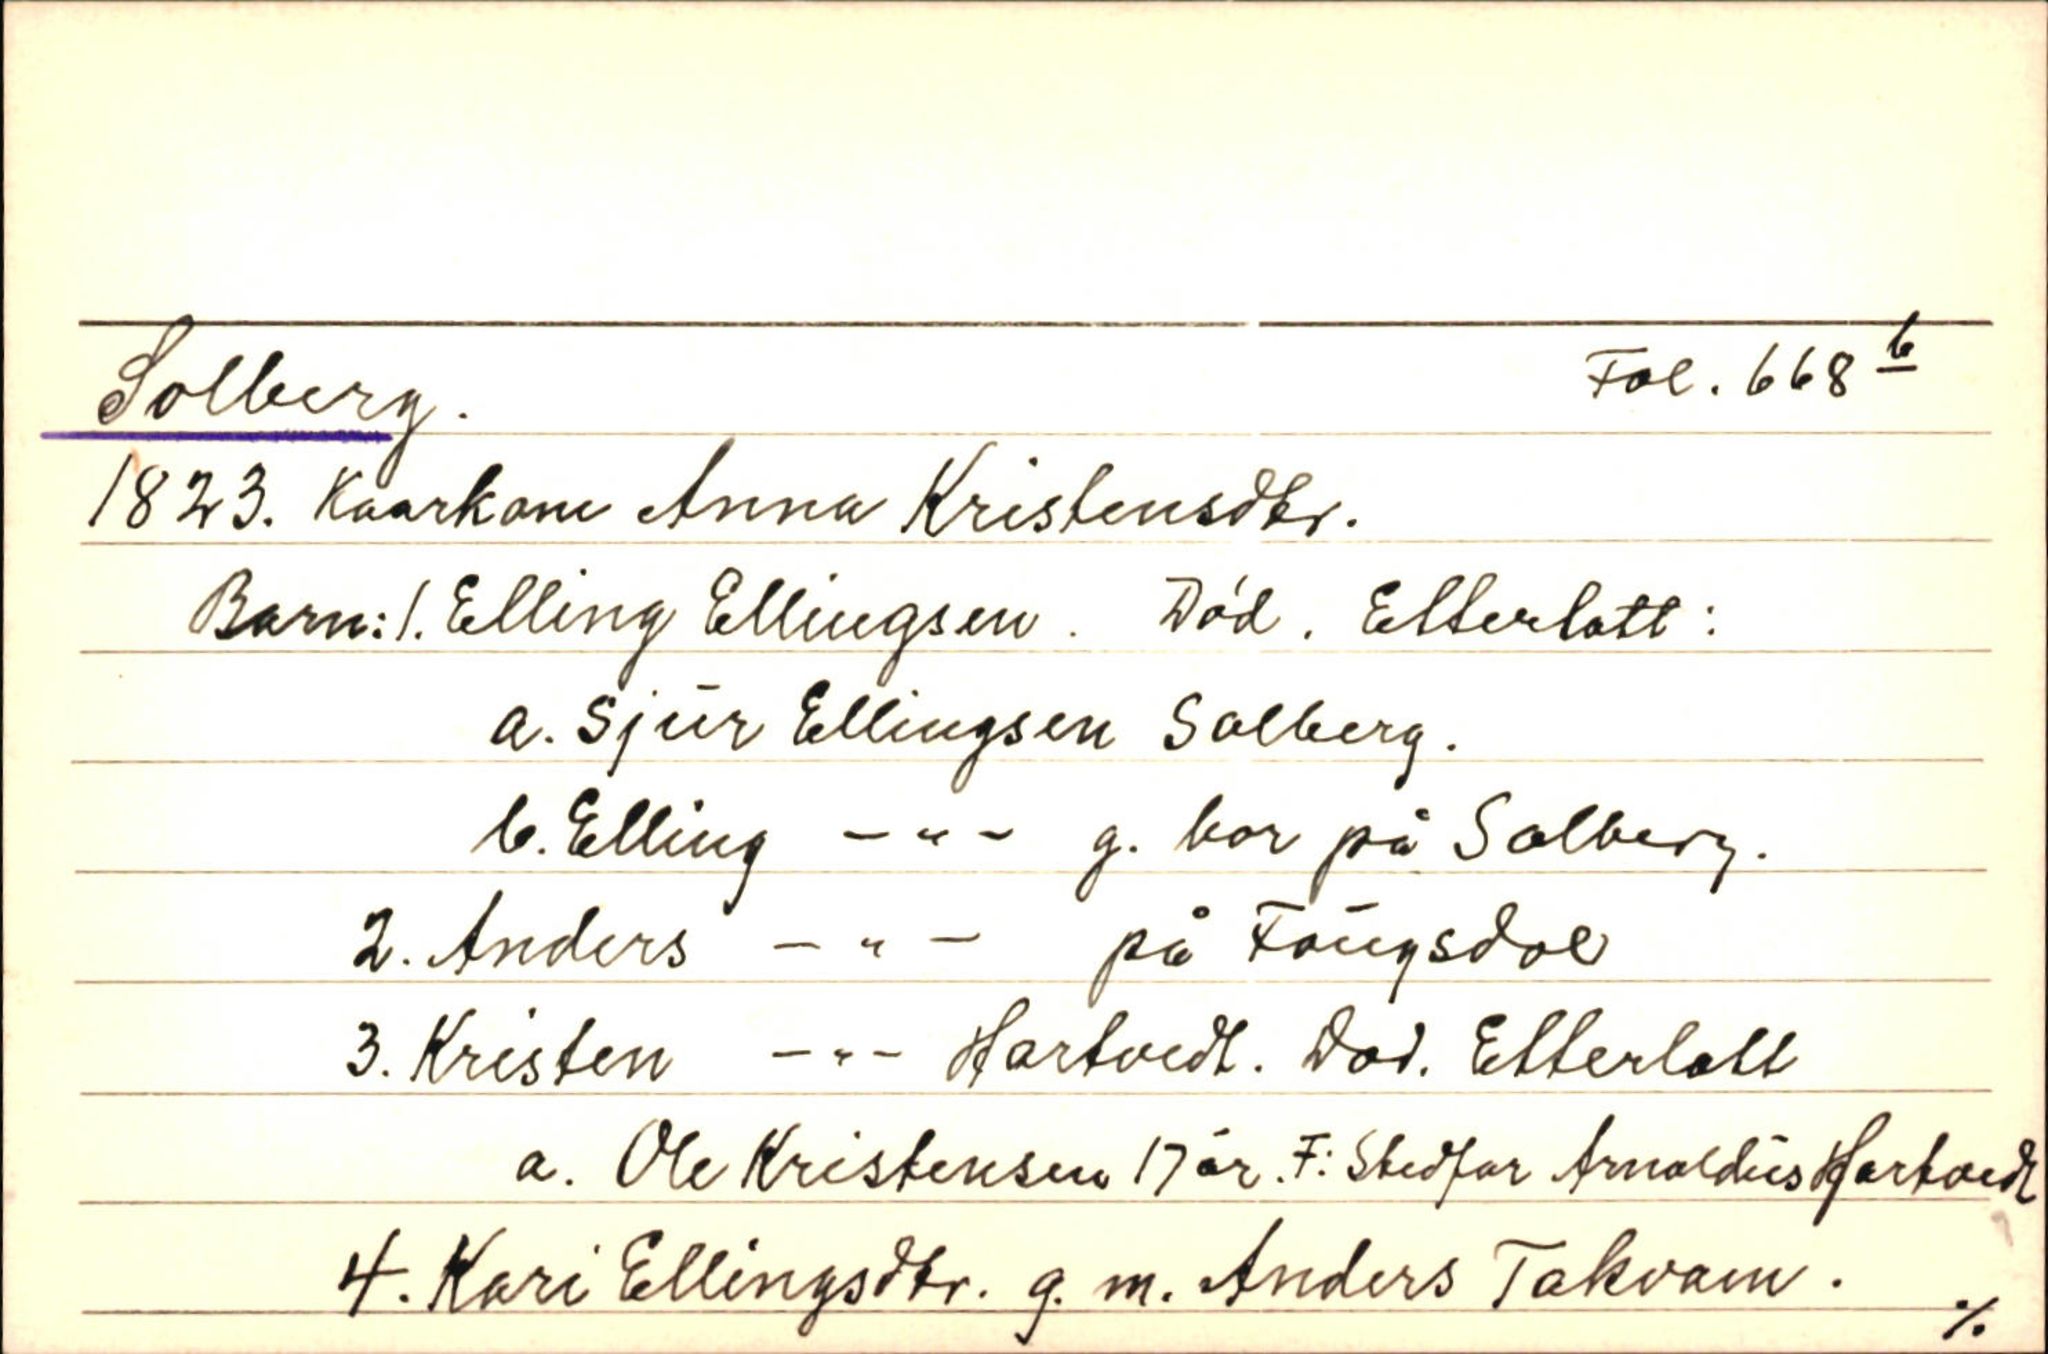 Solberg. Fol. 668 b
1823. Kaarkone Anna Kristensdtr.
Barn: 1. Elling Ellingsen. Död. Etterlatt:
a. Sjur Ellingsen Solberg.
b. Elling —"— g. bor på Solberg.
2. Anders —"— på Fougsdal
3. Kristen —"— Hartvedt. Död. Etterlatt
a. Ole Kristensen 17 år. F: Stedfar Arnoldus Hartvedt
4. Kari Ellingsdtr. g. m. Anders Takvam.
./.